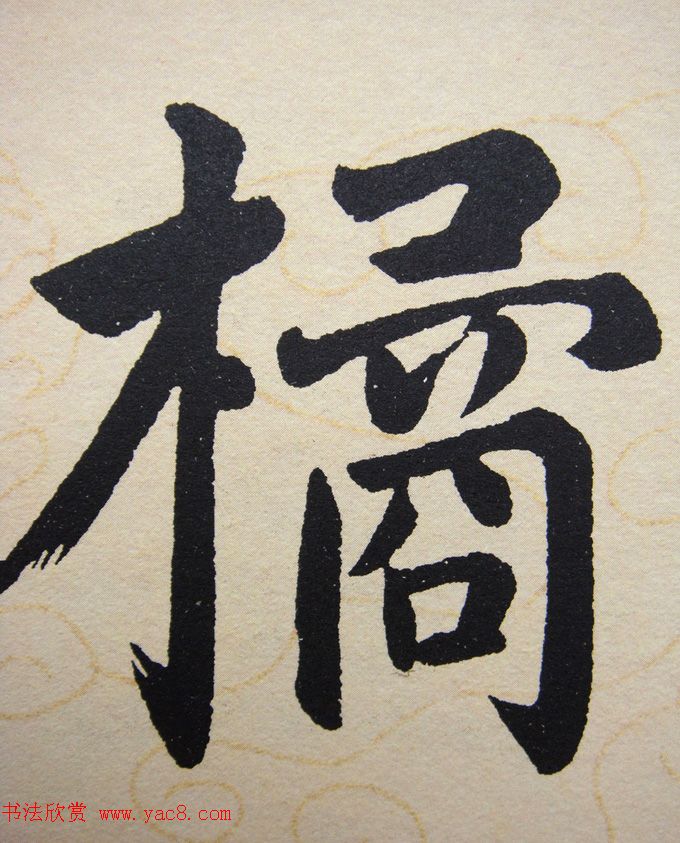 橘
书法欣赏 www.yac8.com